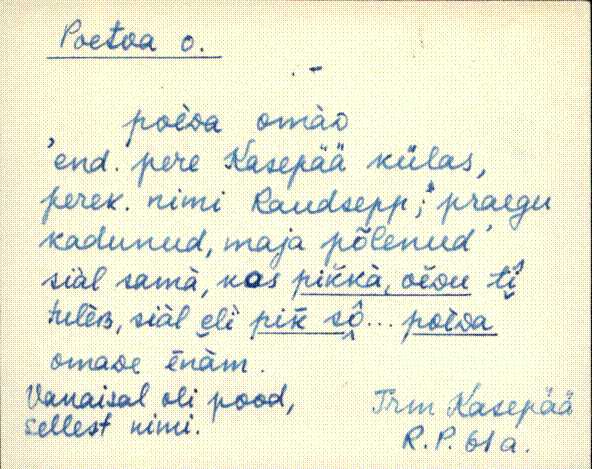 Poetva o.
poèda omàD
'end. pere Kasepää külas,
perek. nimi Raudsepp; "praegu
kadunud, maja põlenud"
siàl samà, kos pikkà, oèdu tî
tulèB, siàl eli pik sô... poèda
omaDe ēnàm.
Vanaisal oli pood,
sellest nimi.
Trm Kasepää
R.P. 61 a.